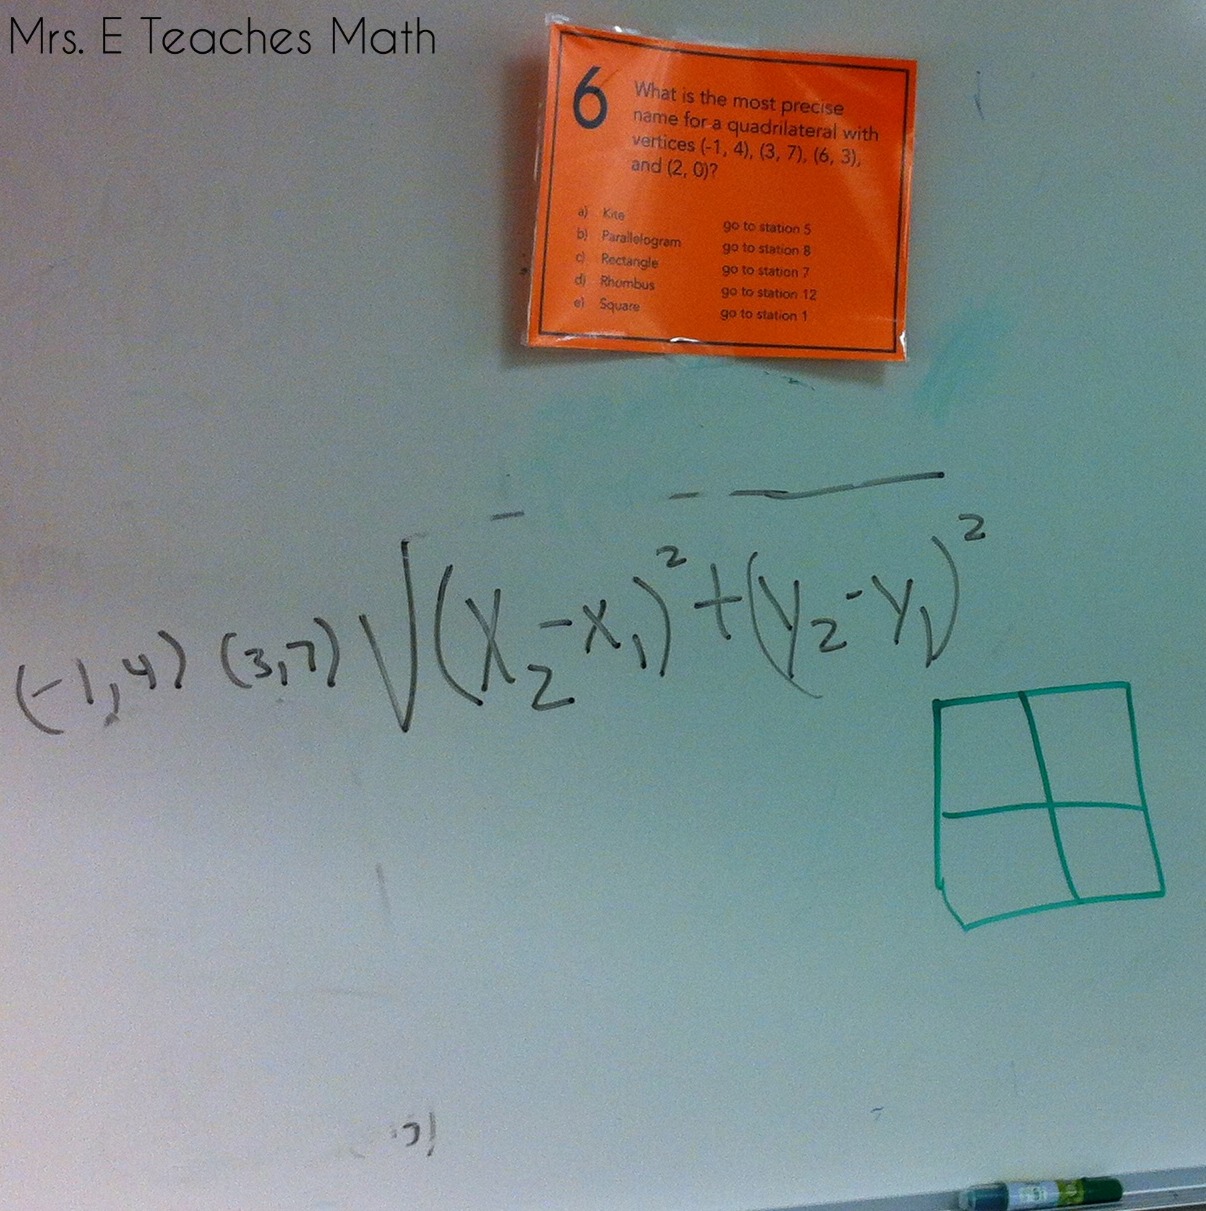 Mrs. E Teaches Math
6
What is the most precise
name for a quadrilateral with
vertices (-1, 4), (3, 7), (6, 3),
and (2, 0)?
a) Kite go to station 5
b) Parallelogram go to station 8
c) Rectangle go to station 7
d) Rhombus go to station 12
e) Square go to station 1
(-1,4) (3,7) √(x₂-x₁)²+(y₂-y₁)²